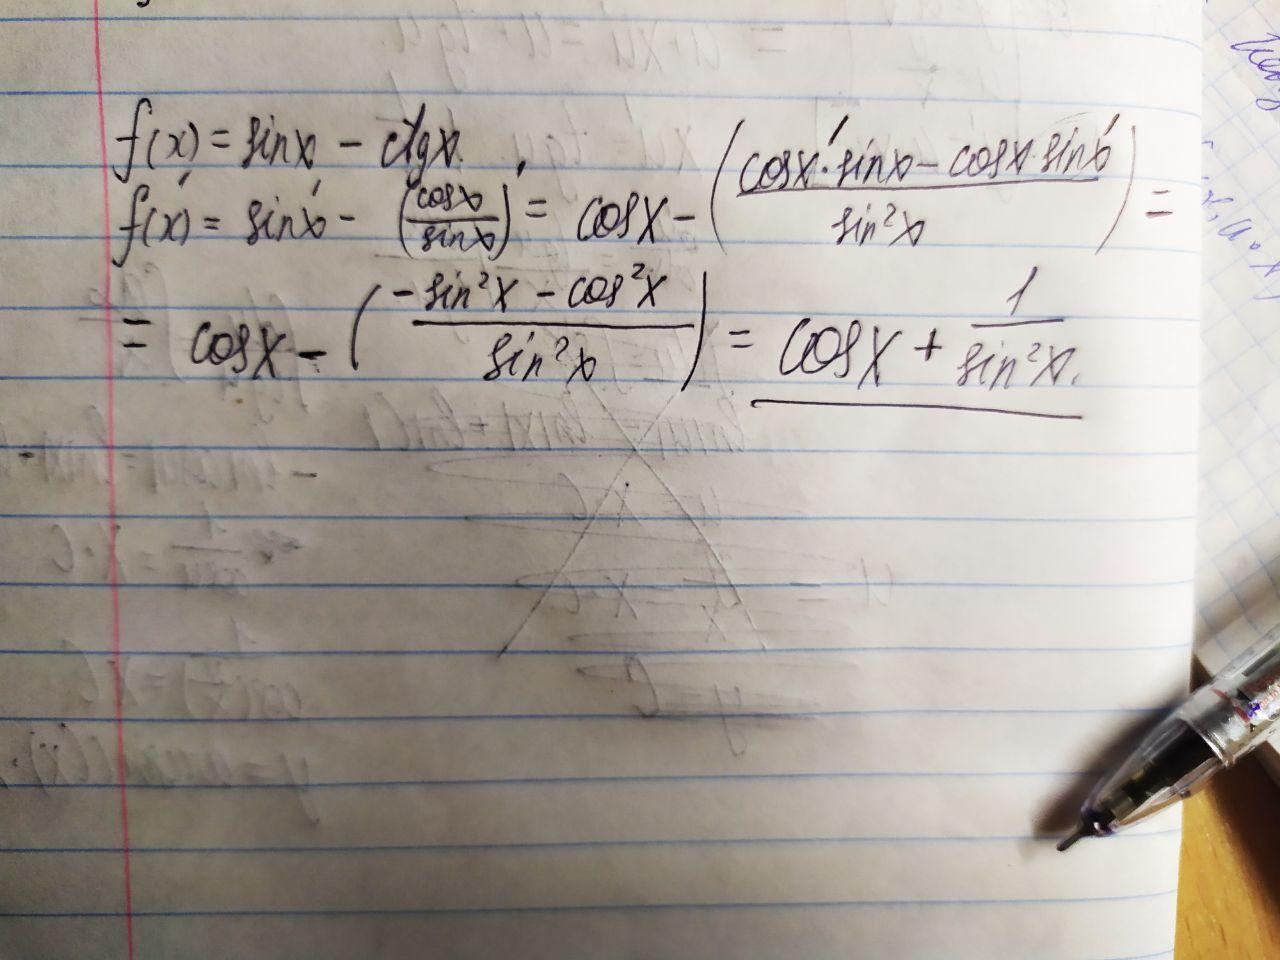 f(x) = sinx - ctgx.
f'(x) = sinx' - (cosx/sinx)' = cosx - ((cosx'·sinx - cosx·sinx')/sin²x) =
= cosx - ((-sin²x - cos²x)/sin²x) = cosx + 1/sin²x.